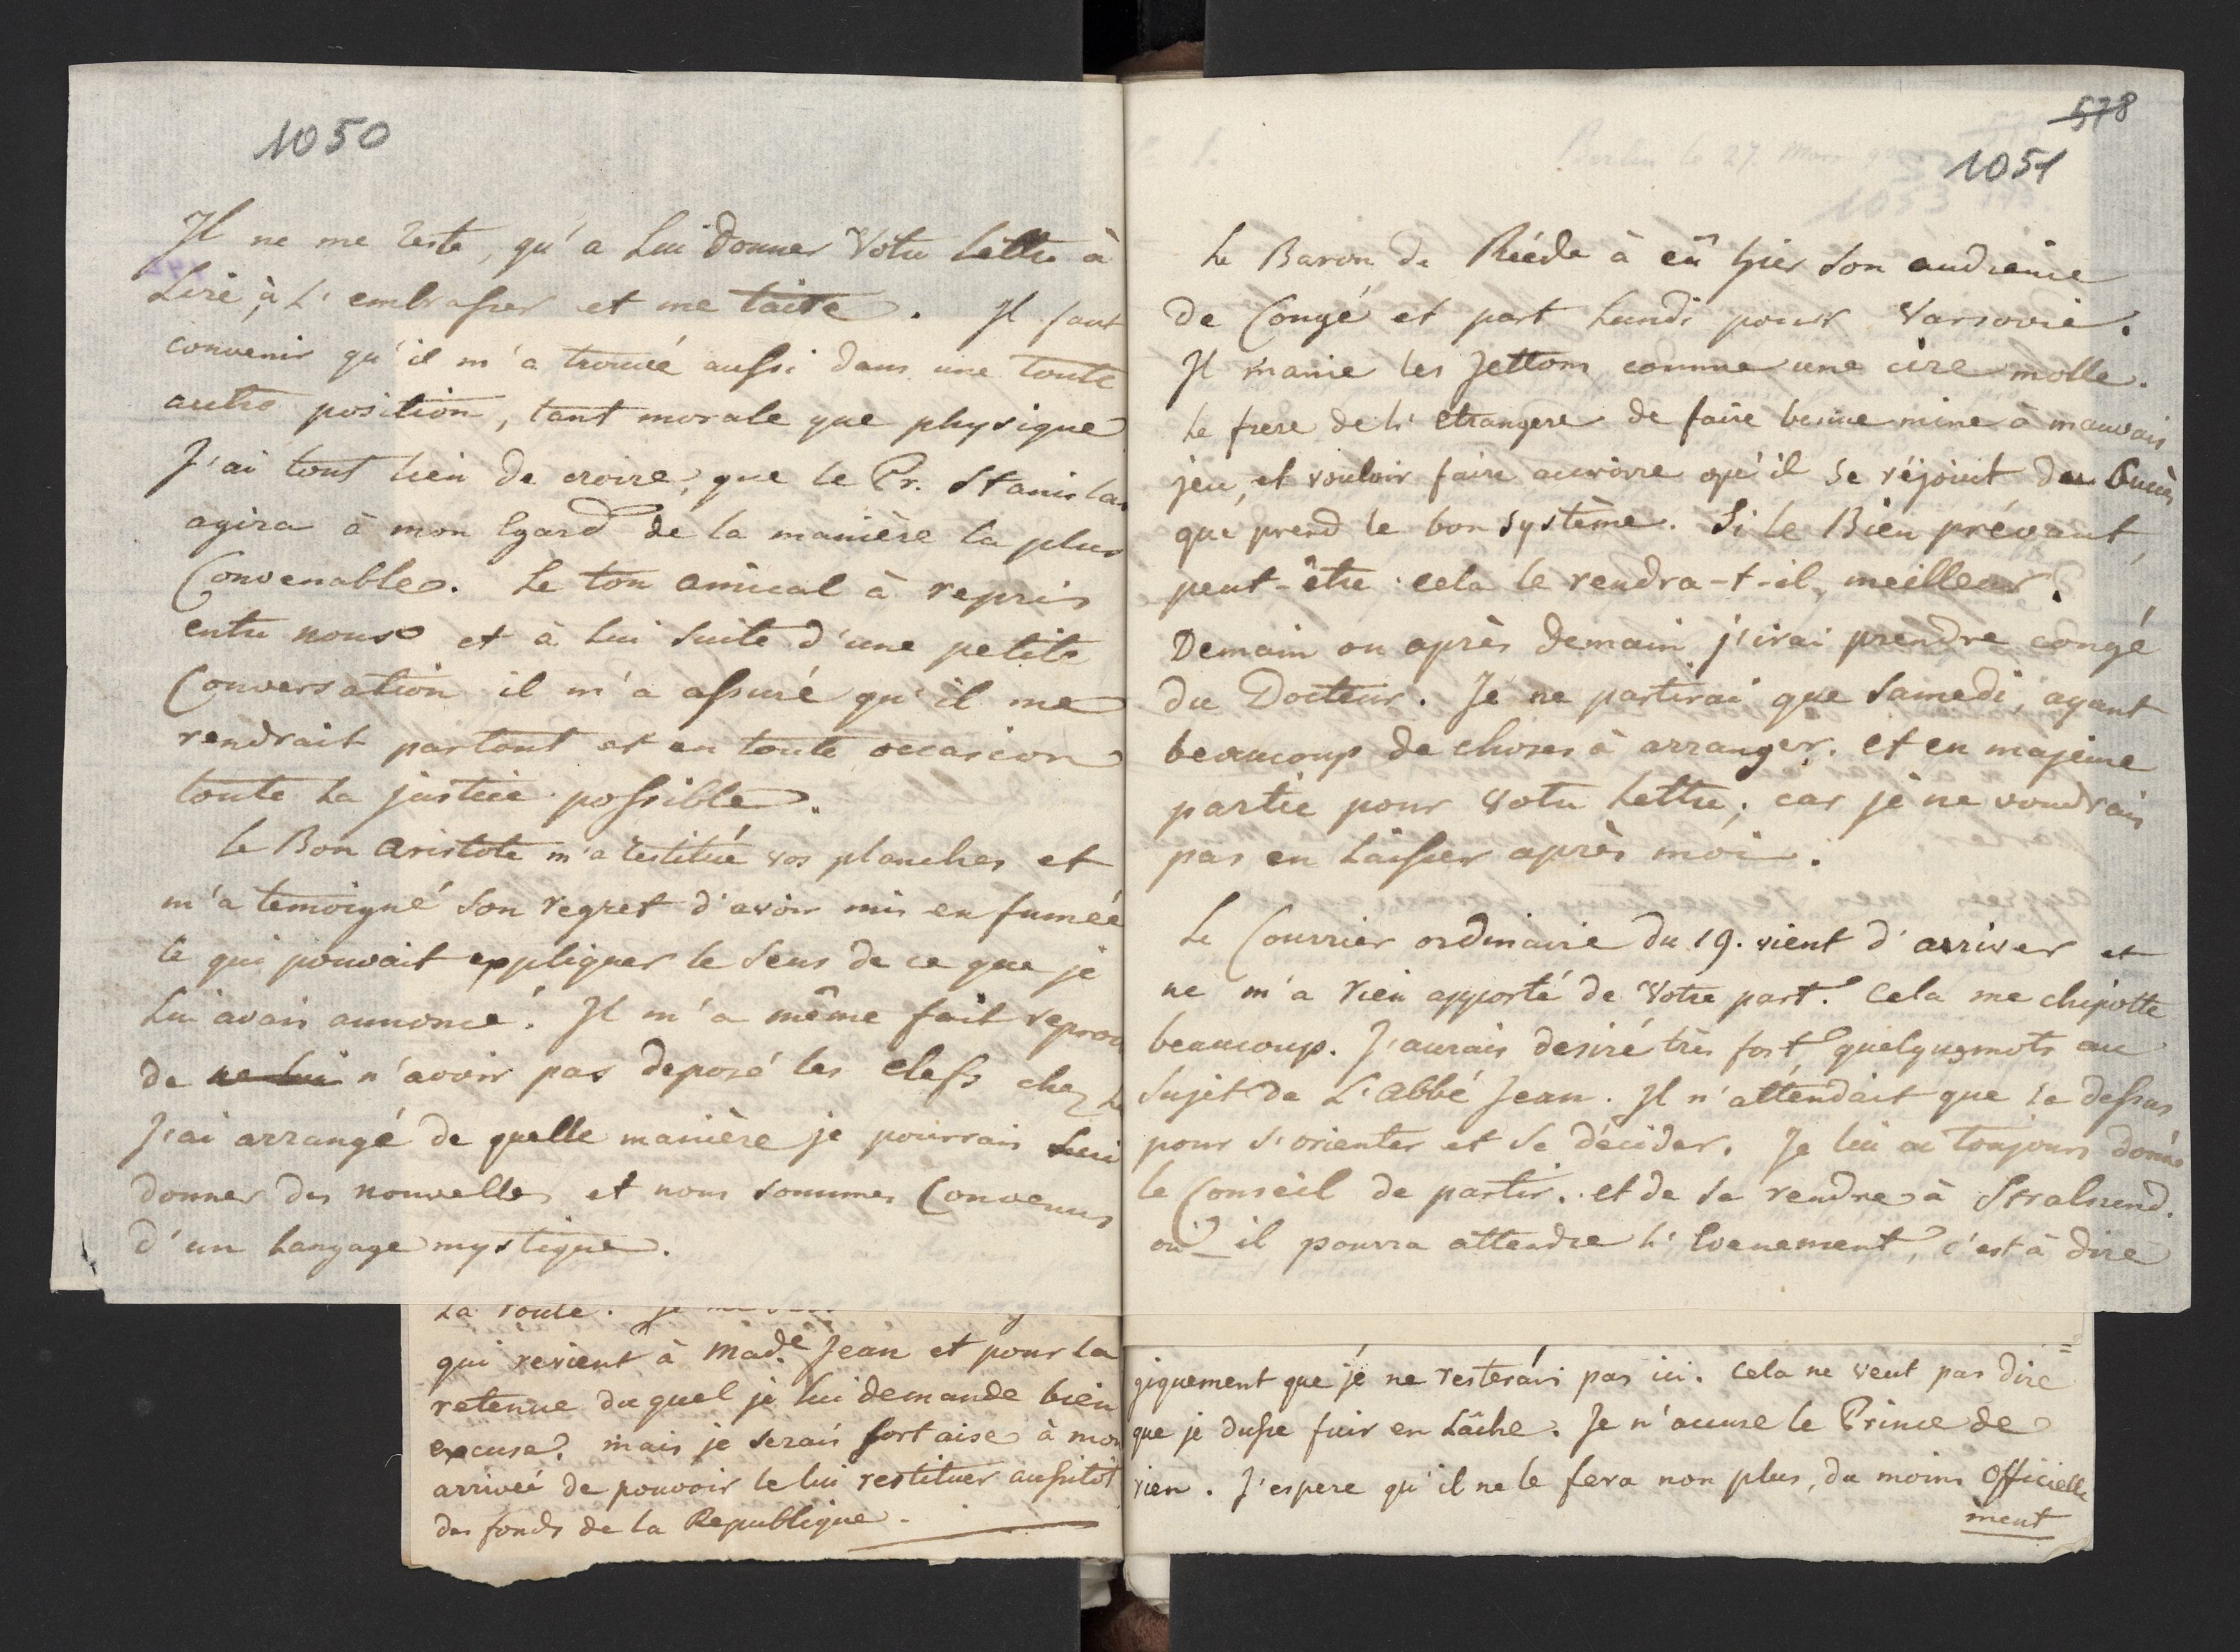 1050
Il ne me reste, qu'a Lui donner Votre Lettre à
Lire, à L'embrasser et me taire. Il faut
convenir qu'il m'a trouvé aussi dans une toute
autre position, tant morale que physique
J'ai tout lieu de croire, que le Pr. Stanislas
agira à mon Egard de la manière la plus
Convenable. Le ton amical à repris
entre nous et à Lui suite d'une petite
Conversation il m'a assuré qu'il me
rendrait partout et en toute occasion
toute La justice possible.
Le Bon Aristote m'a restitué vos planches et
m'a temoigné son regret d'avoir mis en fumée
ce qui pouvait eppliquer le sens de ce que je
Lui avais annoncé. Il m'a même fait reproc
de ne lui n'avoir pas deposé les clefs chez L
J'ai arrangé de quelle manière je pourrais Lui
donner des nouvelles et nous sommes Convenus
d'un Langage mystique.
La route. Je
qui revient à Made Jean et pour la
retenue duquel je Lui demande bien
excuse, mais je serais fort aise à mon
arriveé de pouvoir le lui restituer aussitôt
des fonds de la Republique.
578
1051
Berlin le 27. Mars
1053
Le Baron de Réede à eû hier son audience
de Congé et part Lundi pour Varsovie.
Il manie les Jettons comme une cire molle.
Le frere de L'etrangere de faire bonne mine à mauvais
jeu, et vouloir faire accroire qu'il se réjouit du Succès
que prend le bon système. Si le Bien prévaut,
peut-être cela le rendra-t-il, meilleur?
Demain ou après demain j'irai prendre congé
du Docteur. Je ne partirai que Samedi, ayant
beaucoup de choses à arranger, et en majeure
partie pour Votre Lettre; car je ne voudrais
pas en Laisser après moi.
Le Courrier ordinaire du 19. vient d'arriver et
ne m'a rien apporté de Votre part. Cela me chipotte
beaucoup. J'aurais desiré très fort quelques mots au
Sujet de L'Abbé Jean. Il n'attendait que Le dessus
pour s'orienter et se décider. Je lui ai toujours donné
le Conseil de partir. et de se rendre à Stralsund.
où il pourra attendre L'Evenement, c'est à dire
giquement que je ne resterais pas ici. Cela ne veut pas dire
que je dusse fuir en Lâche. Je n'accuse le Prince de
rien. J'espere qu'il ne le fera non plus, du moins Officielle
ment